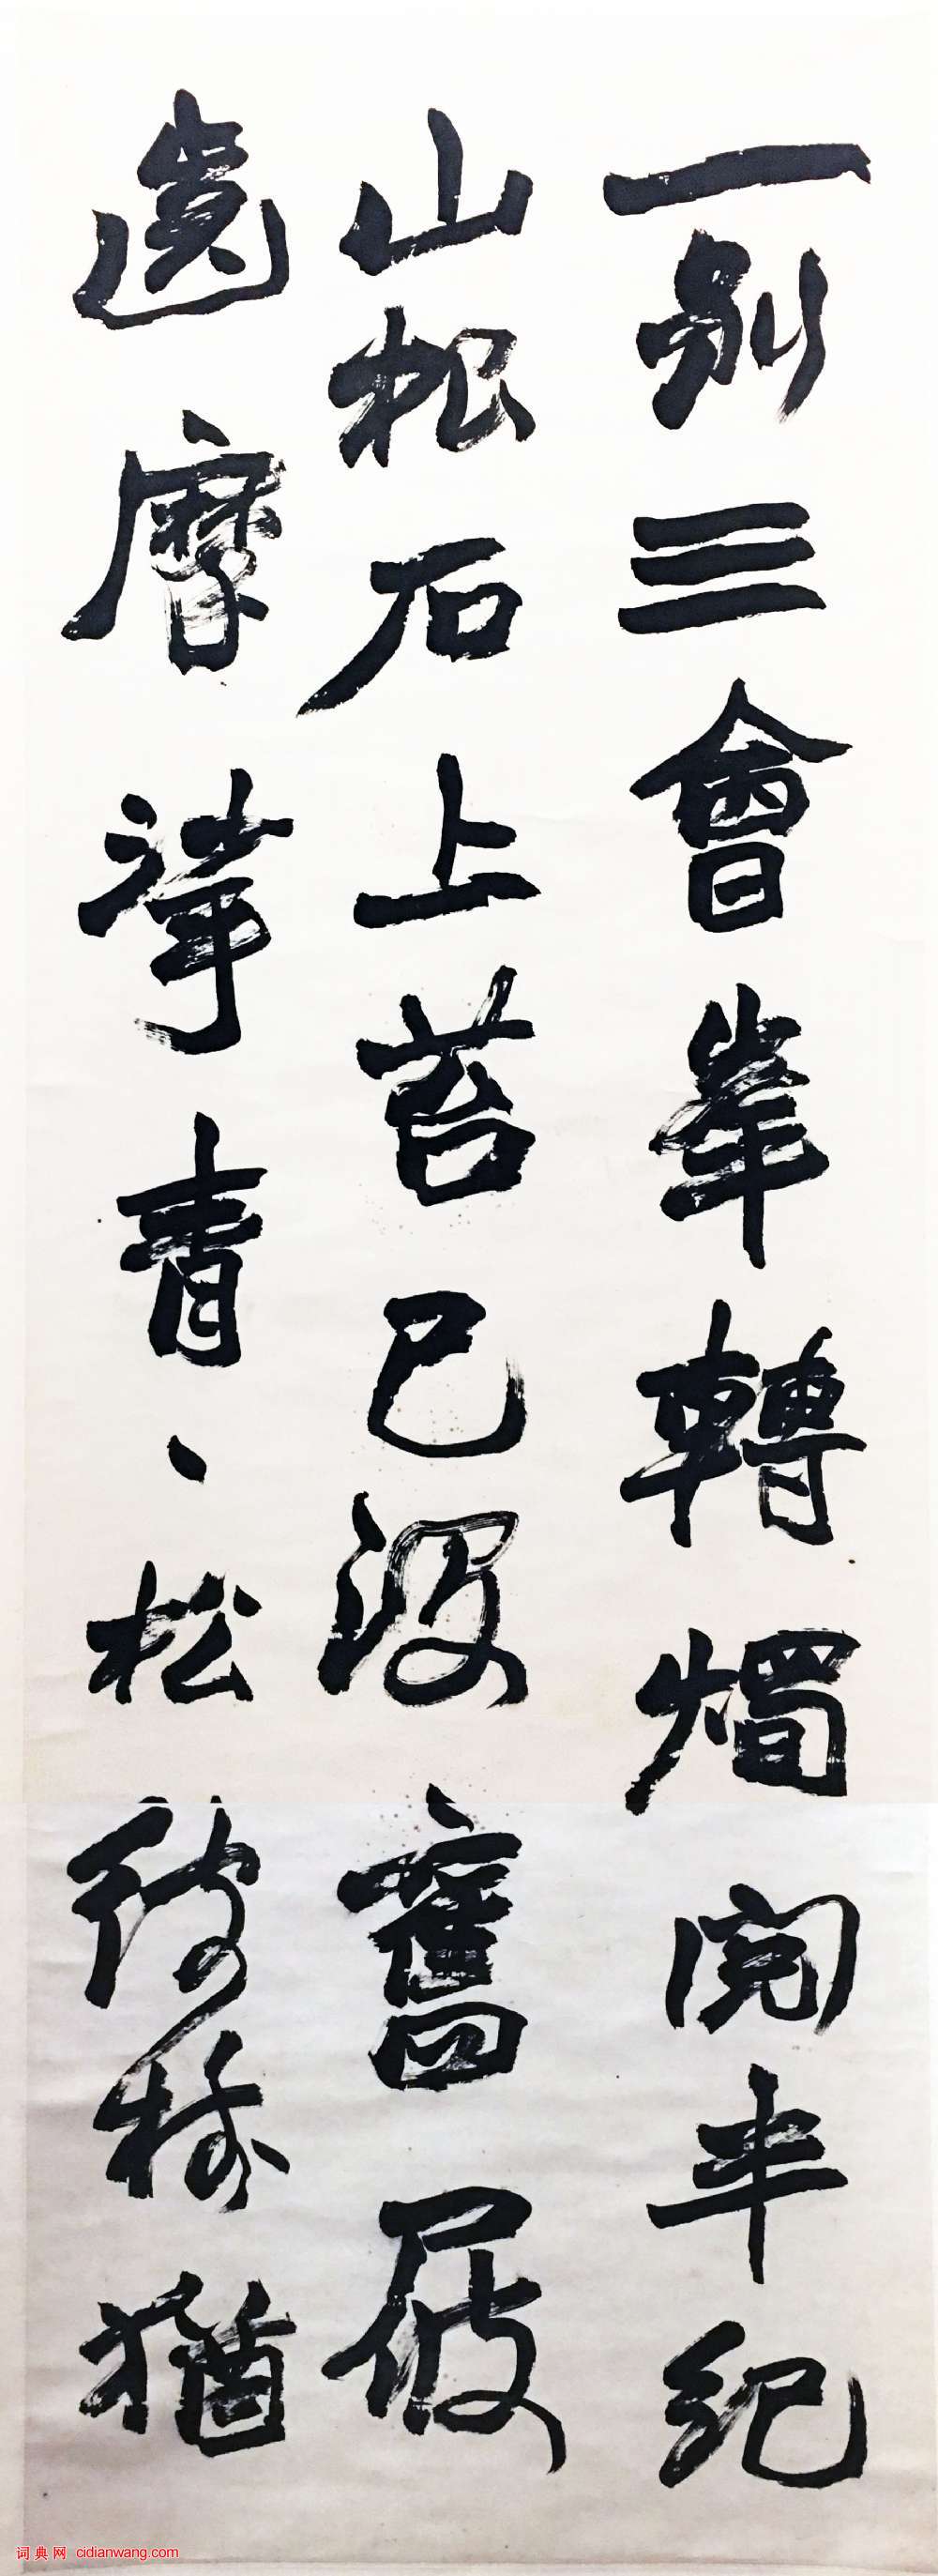 一别三會峯轉燭閱半紀
山松石上苔已没舊屐
齒摩挲青、松終極猶
词典网 cidianwang.com